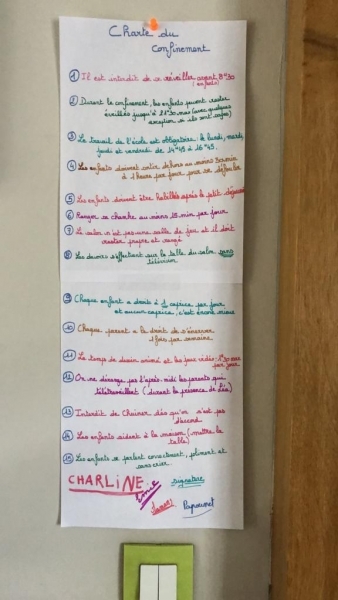 Charte du
confinement
① Il est interdit de se réveiller avant 8h30
(enfants)
② Durant le confinement, les enfants peuvent rester
éveillés jusqu'à 21h30 max (avec quelques
exception si ils sont sages)
③ Le travail de l'école est obligatoire : le lundi, mardi,
jeudi et vendredi de 14h45 à 16h45.
④ Les enfants doivent sortir dehors au moins 30min
à 1 heures par jour pour se défouler
⑤ Les enfants doivent être habillés après le petit déjeuner
⑥ Ranger sa chambre au moins 15 min par jour
⑦ Le salon n'est pas une salle de jeu et il doit
rester propre et rangé
⑧ Les devoirs s'effectuent sur la table du salon sans
télévision
⑨ Chaque enfant a droits à 1 caprice par jour
et aucun caprice, c'est encore mieux
⑩ Chaque parent a le droit de s'énerver
1 fois par semaine
⑪ Le temps de dessin animé et les jeux vidéo : 1h30 max
par jour
⑫ On ne dérange pas l'après-midi les parents qui
télétravaillent (durant la présence de Léa)
⑬ Interdit de chainer dès qu'on s'est pas
d'accord
⑭ Les enfants aident à la maison (mettre la
table)
⑮ Les enfants se parlent correctement, poliment et
sans crier.
CHARLINE
signature